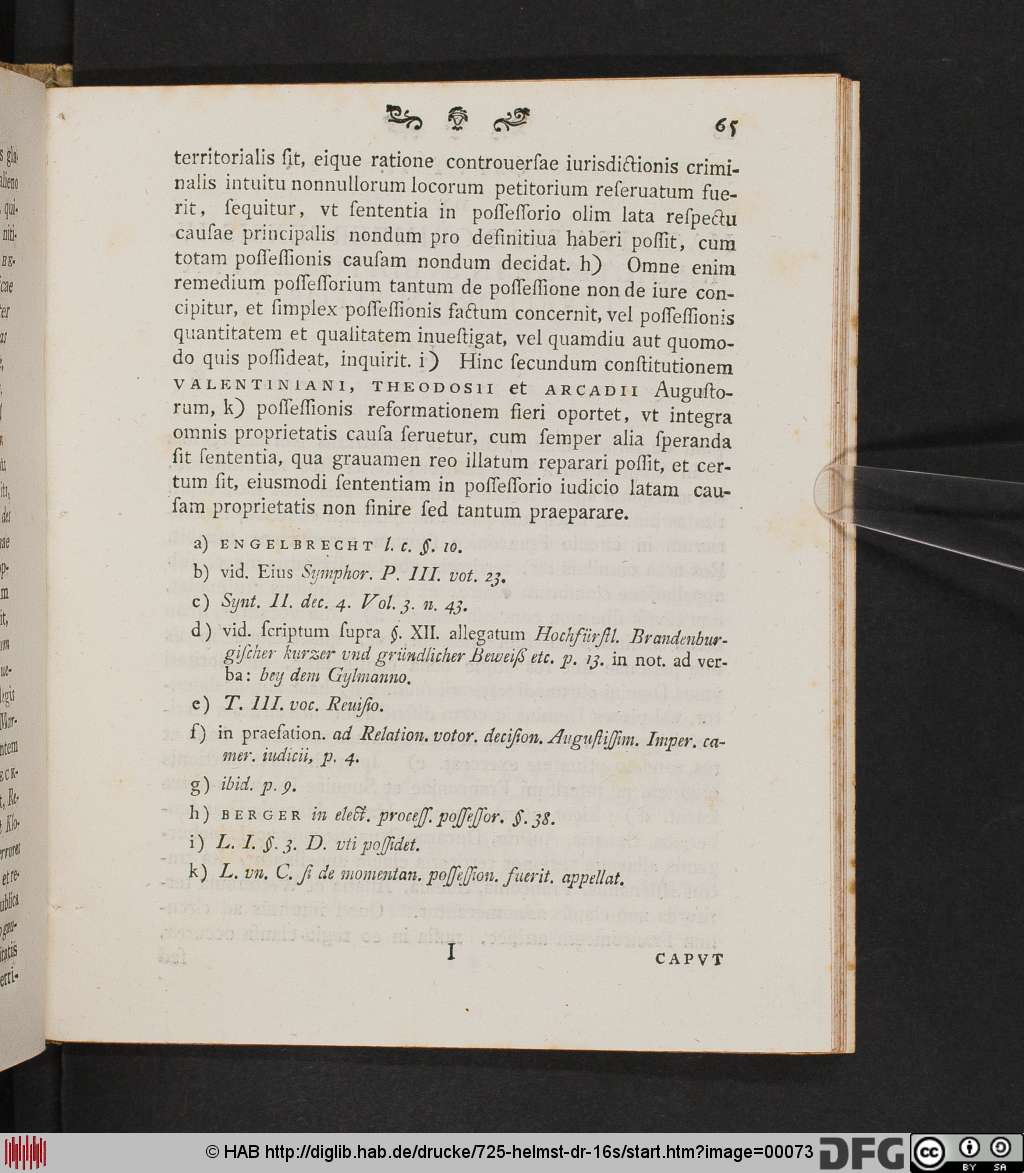 65
territorialis ſit, eique ratione controuerſae iurisdictionis crimi-
nalis intuitu nonnullorum locorum petitorium reſeruatum fue-
rit, ſequitur, vt ſententia in poſſeſſorio olim lata reſpectu
cauſae principalis nondum pro definitiua haberi poſſit, cum
totam poſſeſſionis cauſam nondum decidat. h) Omne enim
remedium poſſeſſorium tantum de poſſeſſione non de iure con-
cipitur, et ſimplex poſſeſſionis factum concernit, vel poſſeſſionis
quantitatem et qualitatem inueſtigat, vel quamdiu aut quomo-
do quis poſſideat, inquirit. i) Hinc ſecundum conſtitutionem
VALENTINIANI, THEODOSII et ARCADII Auguſto-
rum, k) poſſeſſionis reformationem fieri oportet, vt integra
omnis proprietatis cauſa ſeruetur, cum ſemper alia ſperanda
ſit ſententia, qua grauamen reo illatum reparari poſſit, et cer-
tum ſit, eiusmodi ſententiam in poſſeſſorio iudicio latam cau-
ſam proprietatis non finire ſed tantum praeparare.
a) ENGELBRECHT l. c. §. 10.
b) vid. Eius Symphor. P. III. vot. 23.
c) Synt. II. dec. 4. Vol. 3. n. 43.
d) vid. ſcriptum ſupra §. XII. allegatum Hochfürſtl. Brandenbur-
giſcher kurzer vnd gründlicher Beweiß etc. p. 13. in not. ad ver-
ba: bey dem Gylmanno.
e) T. III. voc. Reuiſio.
f) in praefation. ad Relation. votor. deciſion. Auguſtiſſim. Imper. ca-
mer. iudicii, p. 4.
g) ibid. p. 9.
h) BERGER in elect. proceſſ. poſſeſſor. §. 38.
i) L. I. §. 3. D. vti poſſidet.
k) L. vn. C. ſi de momentan. poſſeſſion. fuerit. appellat.
I
CAPVT
© HAB http://diglib.hab.de/drucke/725-helmst-dr-16s/start.htm?image=00073
DFG
cc
BY SA